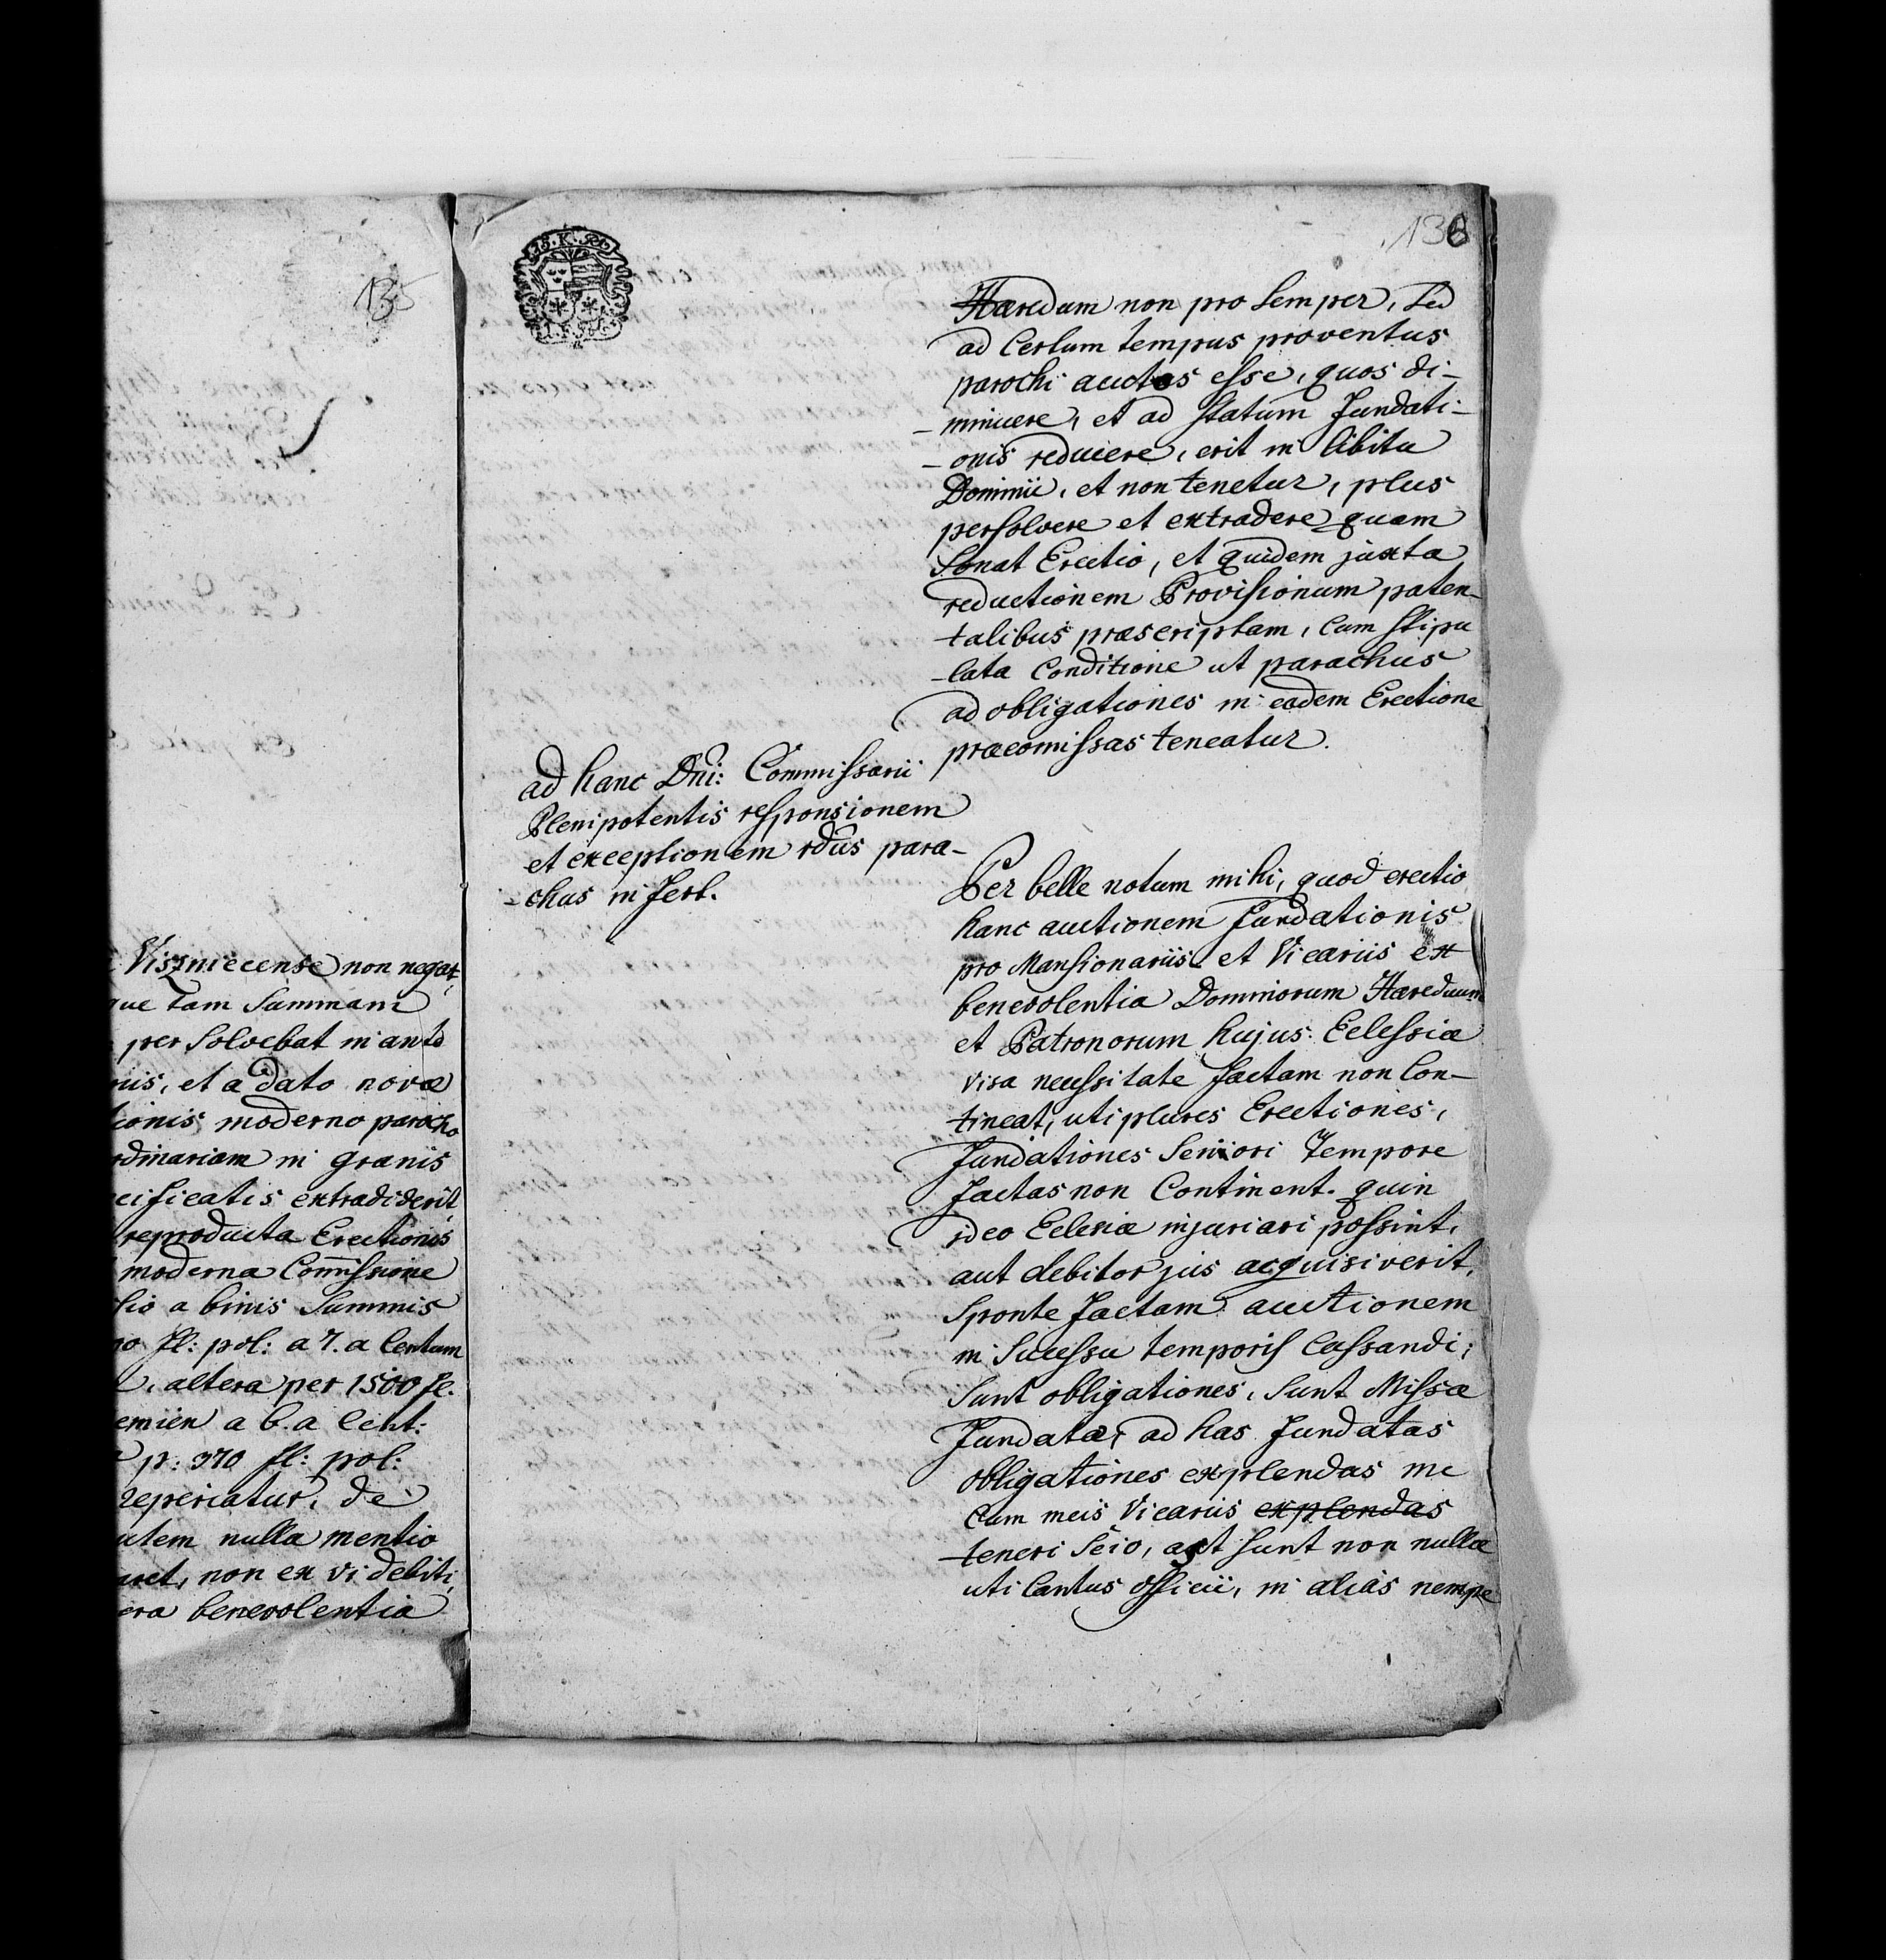 135
Viszniecense non negat,
que tam Summam
per Solvebat in ante
nis, et a dato novæ
tionis moderno parocho
rdinariam in granis
cificatis extradiderit,
reproducta Erectionis
moderna Com̅issione
a binis Summis
Fl: pol: a 7. a Centum
altera per 1500 fl.
a 6. a Cent:
p: 370 fl: pol:
reperiatur, de
utem nulla mentio
aret, non ex vi debiti,
era benevolentia
136
Hæredum non pro Semper, Sed
ad Certum tempus proventus
parochi auctos esse, quos di-
-minuere, et ad Statum Fundati-
-onis reducere, erit in libitu
Dominii, et non tenetur, plus
persolvere et extradere quam
Sonat Erectio, et quidem juxta
reductionem Provisionum paten-
talibus præscriptam, Cum Stipu
-lata Conditione ut parachus
ad obligationes in eadem Erectione
præcomissas teneatur.
ad hanc Dni: Commissarii
Plenipotentis responsionem
et exceptionem rdus para-
-chus in Fert.
Per belle notum mihi, quod erectio
hanc auctionem Fundationis
pro Mansionariis et Vicariis ex
benevolentia Dominorum Hæreduum
et Patronorum hujus Eclessiæ
visa necessitate factam non Con-
tineat, uti plures Erectiones,
Fundationes Seniori Tempore
factas non Continent. quin
ideo Eclesiæ injuriari possint,
aut debitor jus acquisiverit,
Sponte Factam auctionem
in Sucessu temporis Cassandi;
Sunt obligationes, Sunt Missæ
Fundatæ, ad has Fundatas
obligationes explendas me
Cum meis Vicariis explendas
teneri Scio, ast sunt non nullæ
uti Cantus officii, in alias nempe